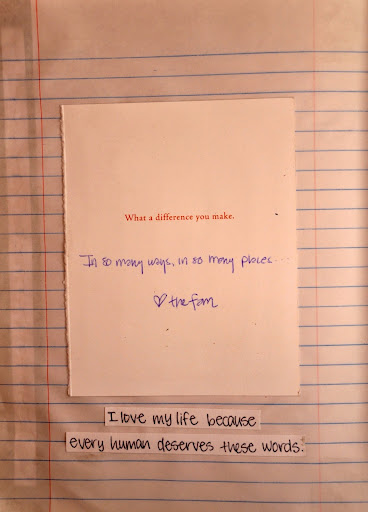 What a difference you make.
In so many ways, in so many places...
♡ the fam
I love my life because
every human deserves these words.